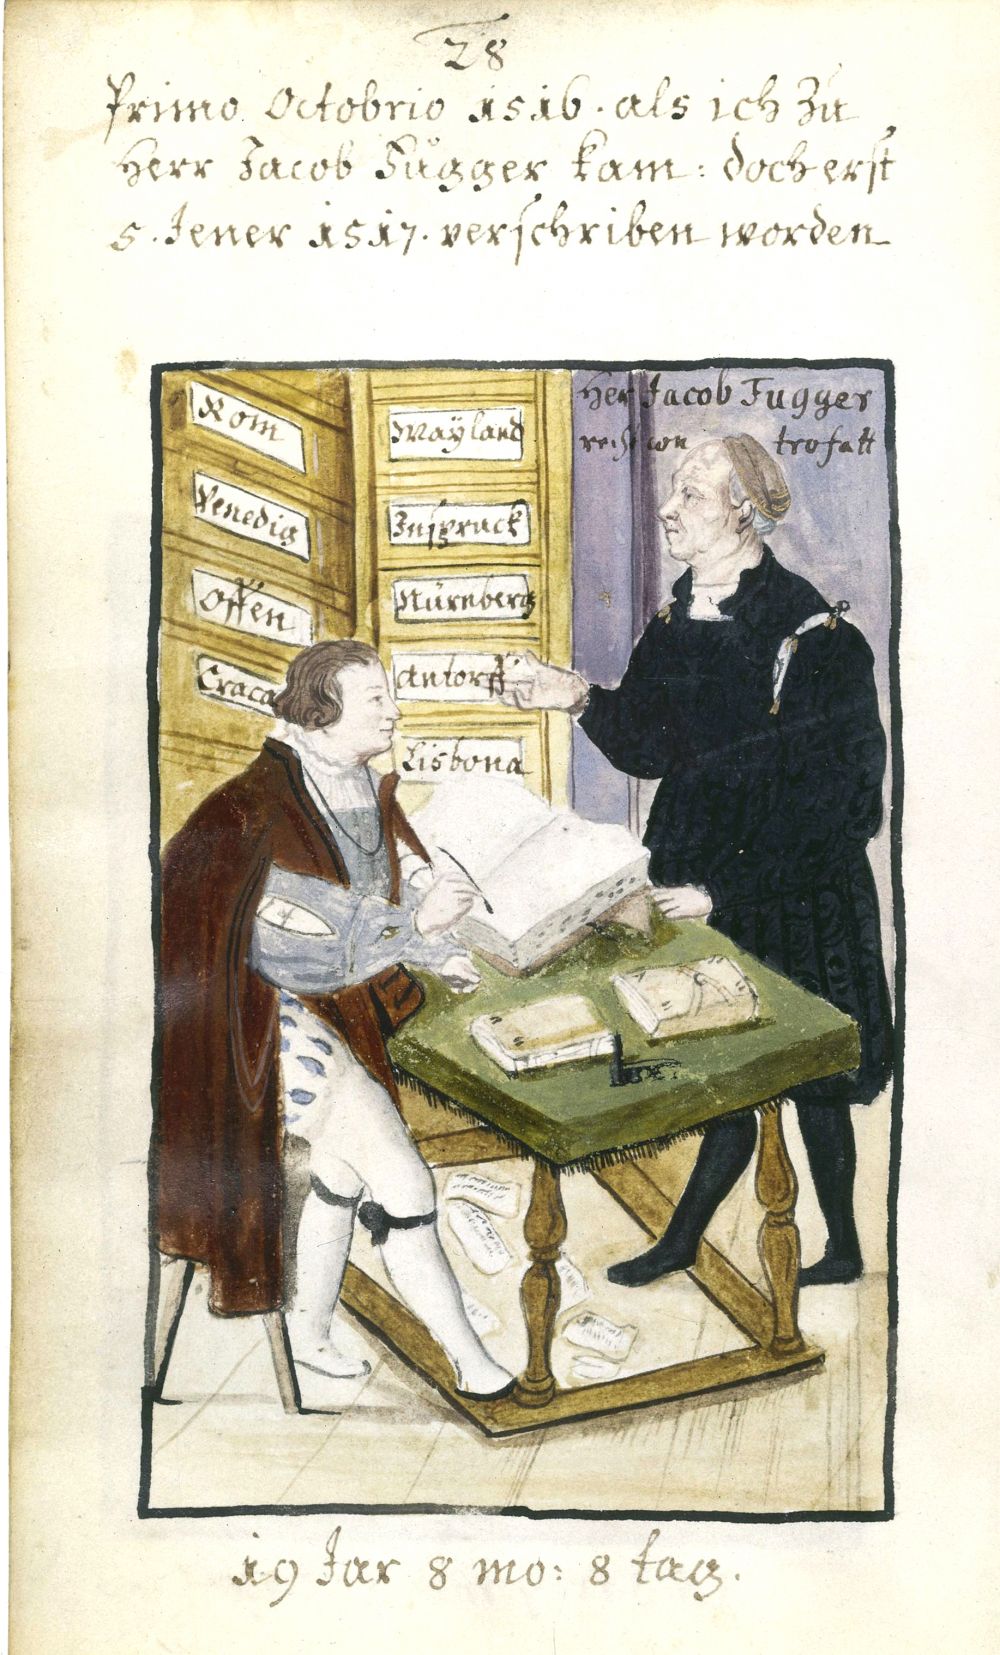 28
Primo Octobrio 1516. als ich zu
Herr Jacob Fugger kam: doch erst
5. Jener 1517. verschriben worden
Her Jacob Fugger
trofatt
Rom
Venedig
Offen
Craca
Mayland
Inspruck
Nürnberg
Antorff
Lisbona
19 Jar 8 mo: 8 tag.